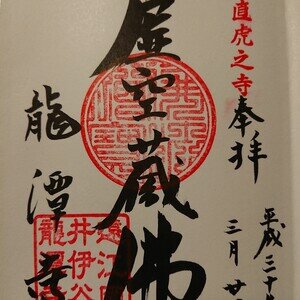 直虎之寺
奉拝
平成三十
三月廿
虚空蔵佛
龍潭寺
遠江國
井伊谷